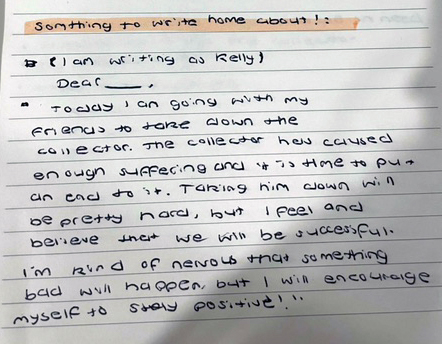 Somthing to write home about!:
(I am writing as Kelly)
Dear ____,
Today I an going with my
friends to take down the
collector. The collector has caused
enough suffering and it is time to put
an end to it. Taking him down will
be pretty hard, but I feel and
believe that we will be successful.
I'm kind of nervous that something
bad will happen, but I will encourage
myself to stay positive!!